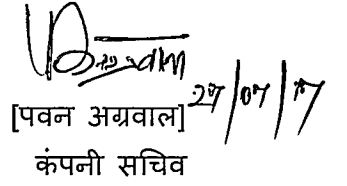 [पवन अग्रवाल] 27/07/17
कंपनी सचिव